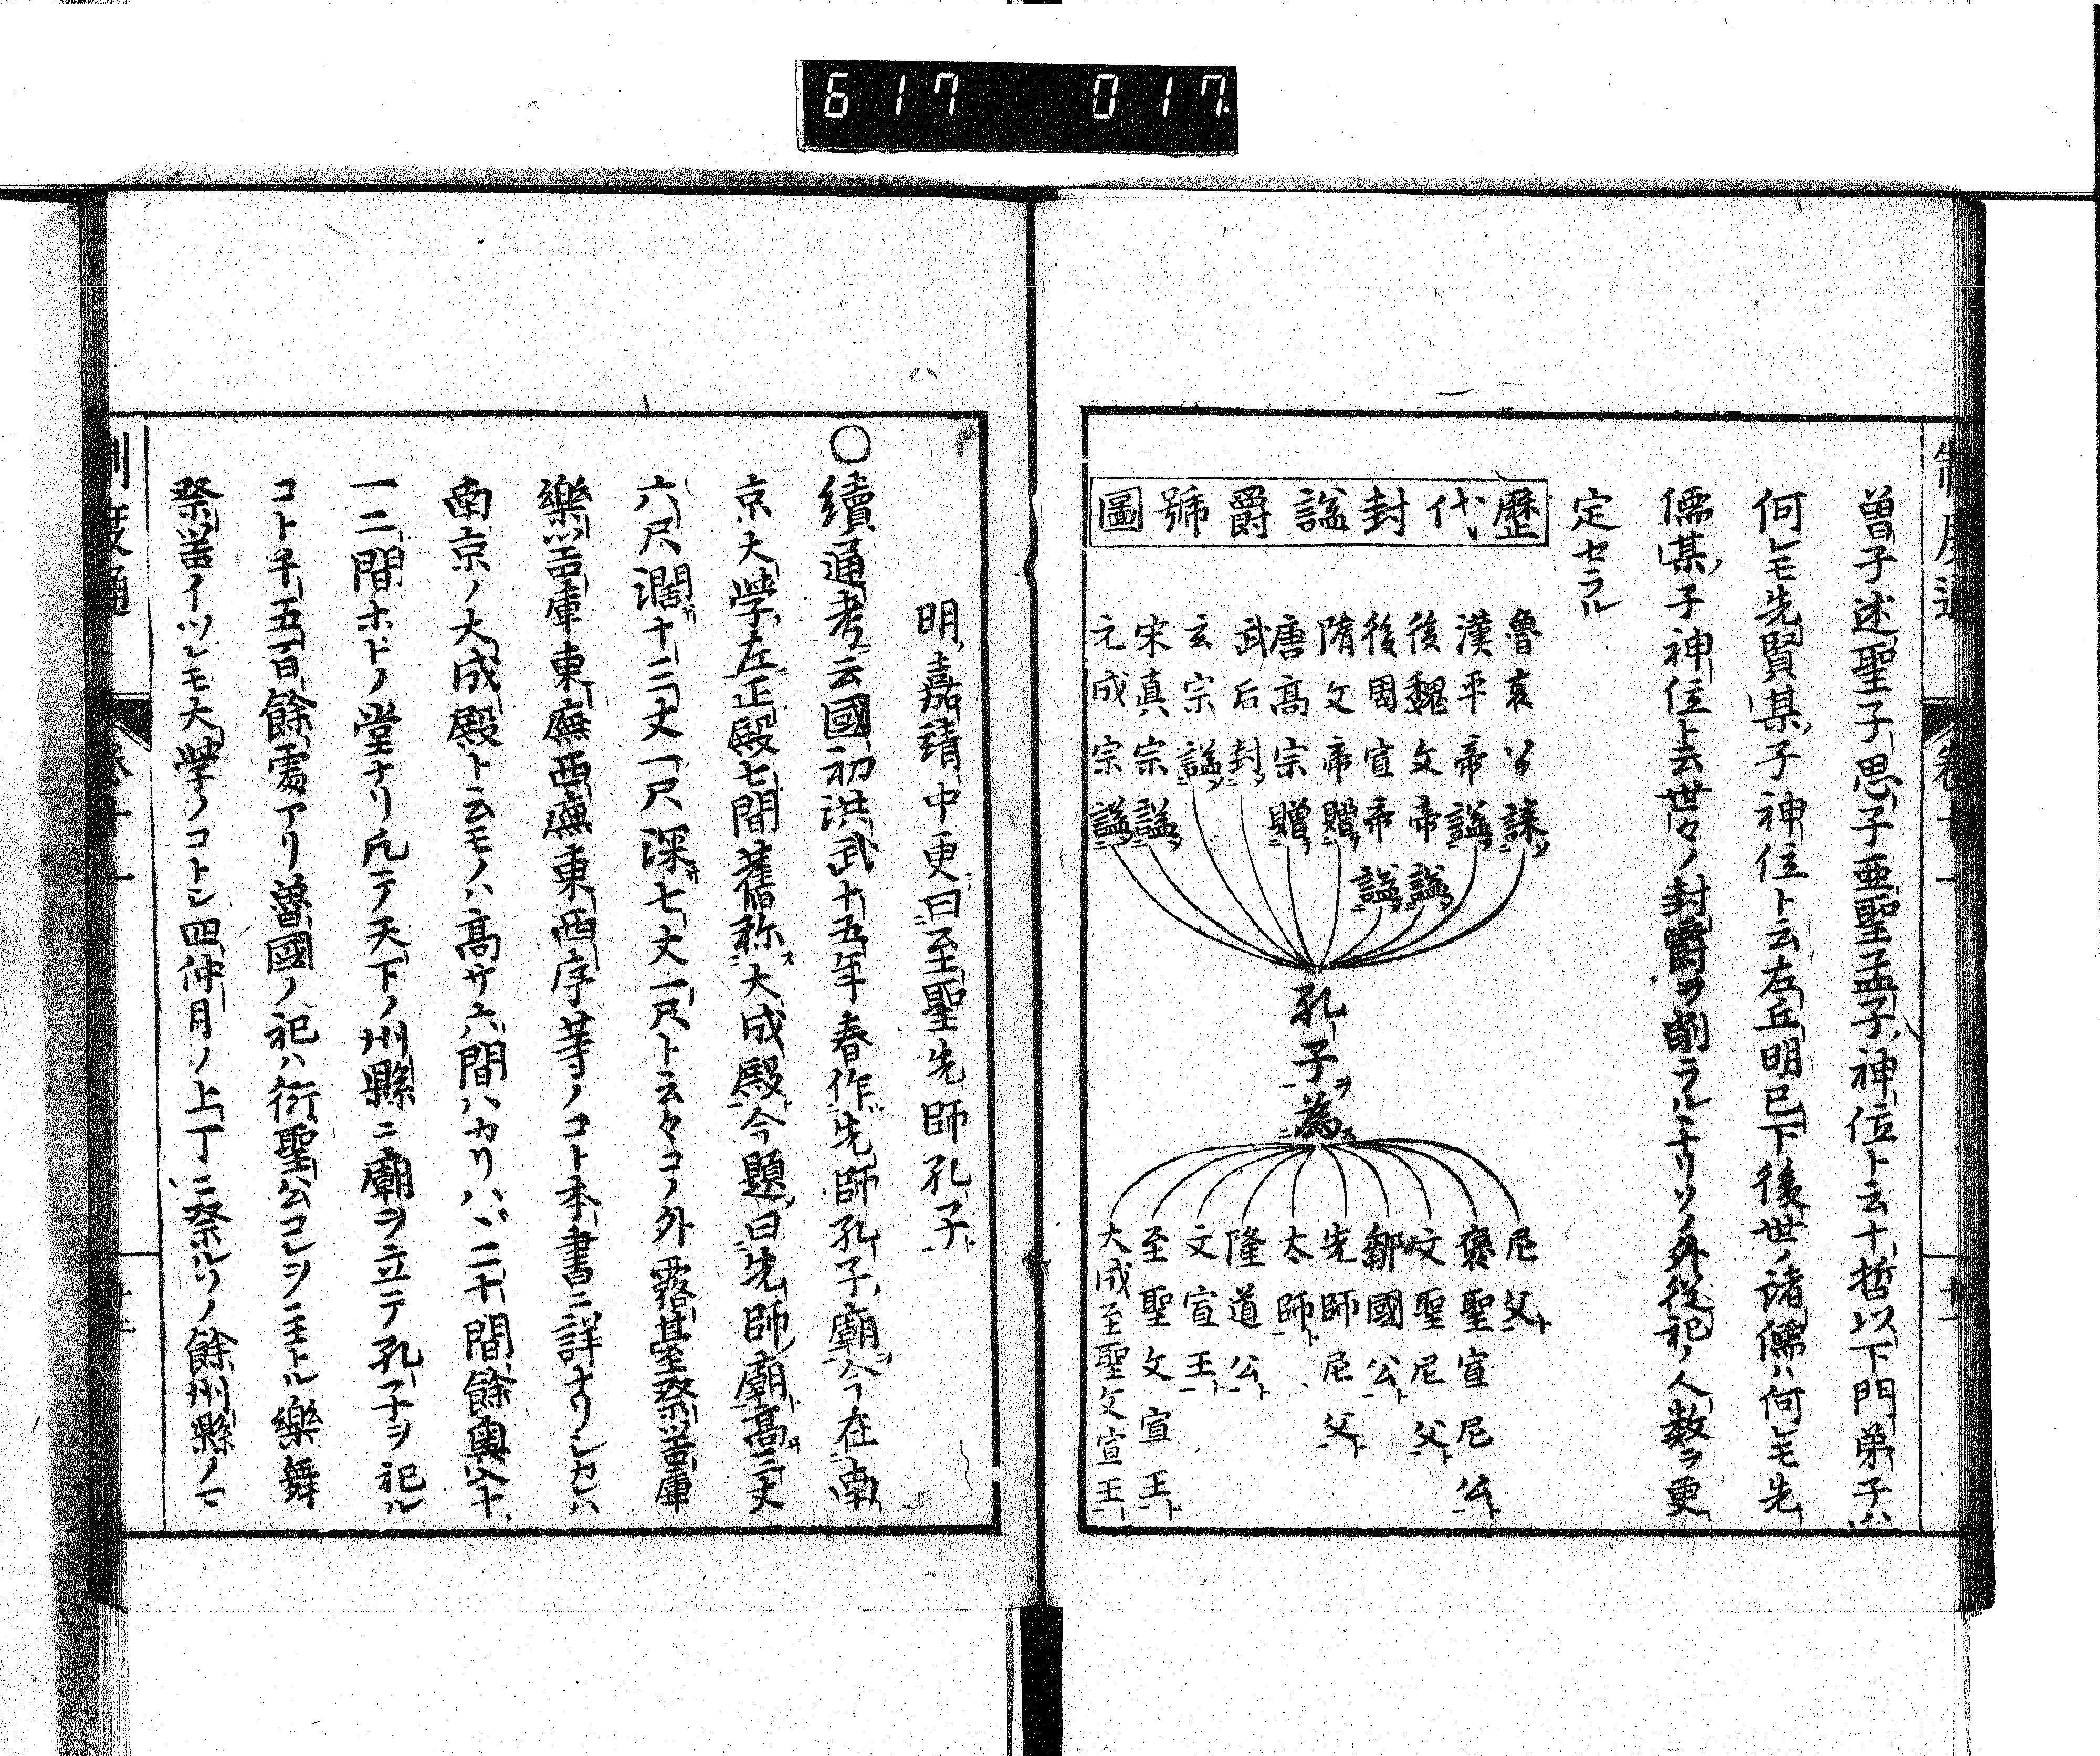 617 017
曽子述聖子思子亜聖孟子神位ト云十哲以下門弟子ハ
何レモ先賢某子神位ト云左丘明已下後世ノ諸儒ハ何レモ先
儒某子神位ト云世々ノ封爵ヲ削ラルヽナリソノ外從祀ノ人数ヲ更
定セラル
歷代封謚爵號圖
魯哀公誄
漢平帝謚
後魏文帝謚
後周宣帝謚
隋文帝贈
唐高宗贈
武后封
玄宗謚
宋真宗謚
元成宗謚
孔子ヲ為ス
尼父ト
褒聖宣尼公ト
文聖尼父ト
鄒國公ト
先師尼父ト
太師ト
隆道公ト
文宣王ト
至聖文宣王ト
大成至聖文宣王ト
明嘉靖中更曰至聖先師孔子ト
○續通考云國初洪武十五年春作先師孔子廟今在南
京大學左正殿七間舊称大成殿今題曰先師廟高三丈
六尺濶十三丈一尺深七丈一尺ト云々コノ外露基至祭器庫
樂器庫東廡西廡東西序等ノコト本書ニ詳ナリシカハ
南京ノ大成殿ト云モノハ高サ六間ハカリハヾ二十間餘奥ハ十
一二間ホドノ堂ナリ凡テ天下ノ州縣ニ廟ヲ立テ孔子ヲ祀ル
コト千五百餘處アリ魯國ノ祀ハ衍聖公コレヲ主トル樂舞
祭器イツレモ大學ノコトシ四仲月ノ上丁ニ祭ルソノ餘州縣ノ